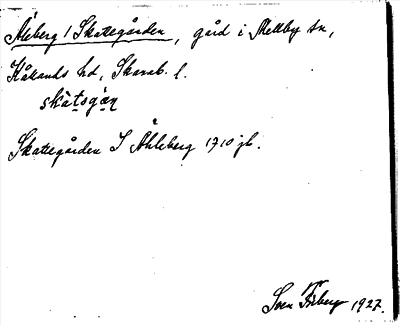 Åleberg / Skattegården, gård i Mellby sn,
Kåkinds hd, Skarab. l.
skàtsgán
Skattegården I Åhleberg 1710 jb.
Sven Friberg 1927.